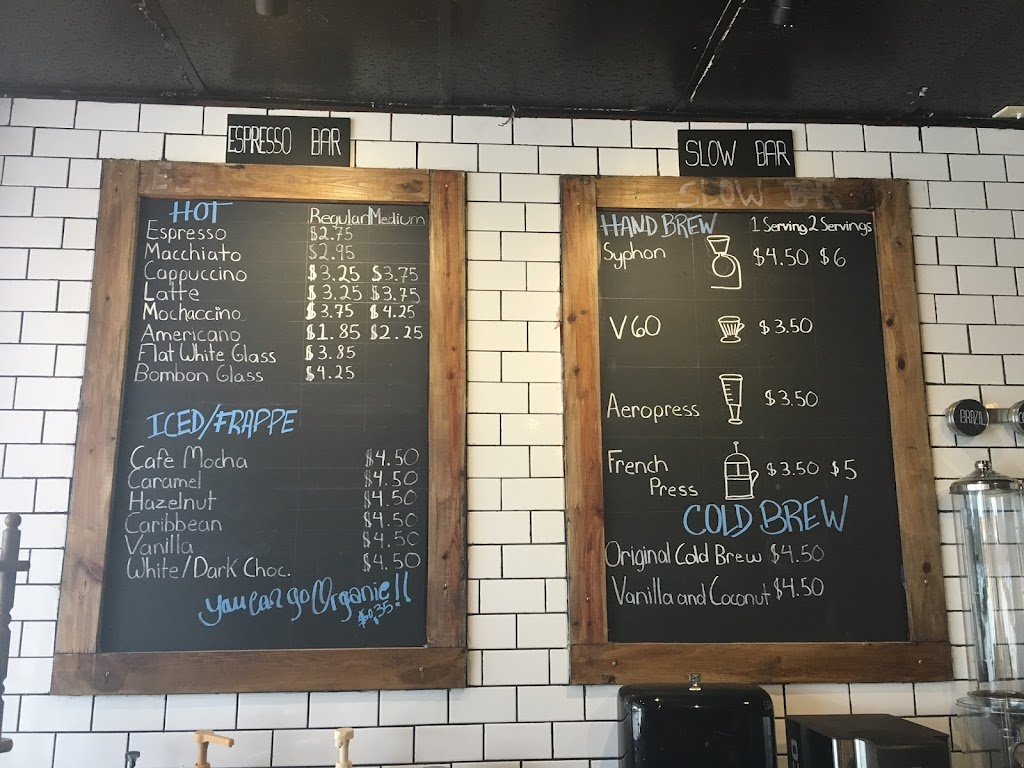 ESPRESSO BAR
HOT Regular Medium
Espresso $2.75
Macchiato $2.95
Cappuccino $3.25 $3.75
Latte $3.25 $3.75
Mochaccino $3.75 $4.25
Americano $1.85 $2.25
Flat White Glass $3.85
Bombon Glass $4.25
ICED/FRAPPE
Cafe Mocha $4.50
Caramel $4.50
Hazelnut $4.50
Caribbean $4.50
Vanilla $4.50
White/Dark Choc. $4.50
you can go Organic!!
$0.35
SLOW BAR
SLOW BAR
HAND BREW 1 Serving 2 Servings
Syphon $4.50 $6
V60 $3.50
Aeropress $3.50
French
Press $3.50 $5
COLD BREW
Original Cold Brew $4.50
Vanilla and Coconut $4.50
BRAZIL